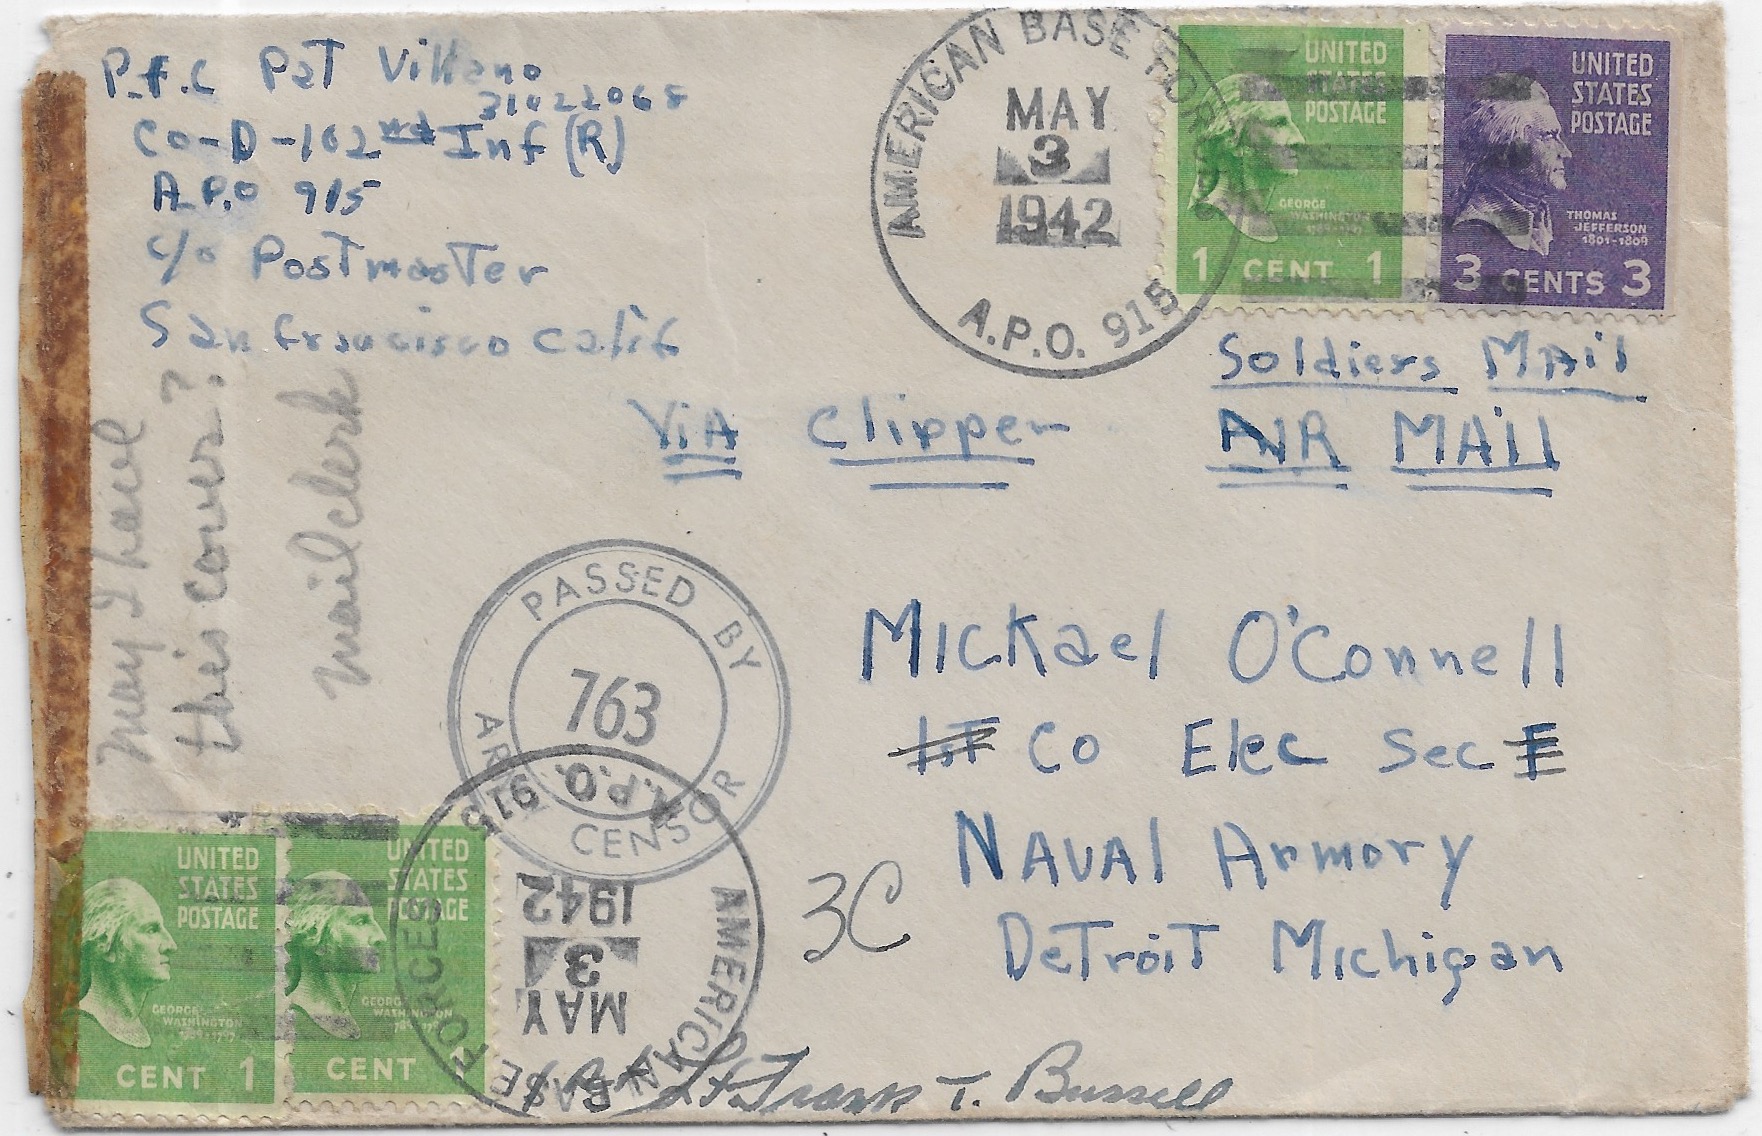 P.F.C Pat Villano
31022068
Co-D-102nd Inf (R)
A.P.O 915
c/o Postmaster
San Francisco Calif
AMERICAN BASE FORCES
MAY
3
1942
A.P.O. 915
UNITED
STATES
POSTAGE
GEORGE
WASHINGTON
1 CENT 1
UNITED
STATES
POSTAGE
THOMAS
JEFFERSON
1801-1809
3 CENTS 3
Soldiers Mail
Via Clipper AIR MAil
May I have
this cover?
mailclerk
PASSED BY
763
ARMY CENSOR
Mickael O'Connell
1st Co Elec Sec E
NAVAl Armory
DeTroiT Michigan
3C
UNITED
STATES
POSTAGE
GEORGE
WASHINGTON
CENT 1
UNITED
STATES
POSTAGE
GEORGE
WASHINGTON
CENT
AMERICAN BASE FORCES
MAY
3
1942
A.P.O. 915
Lt Frank T. Bussell